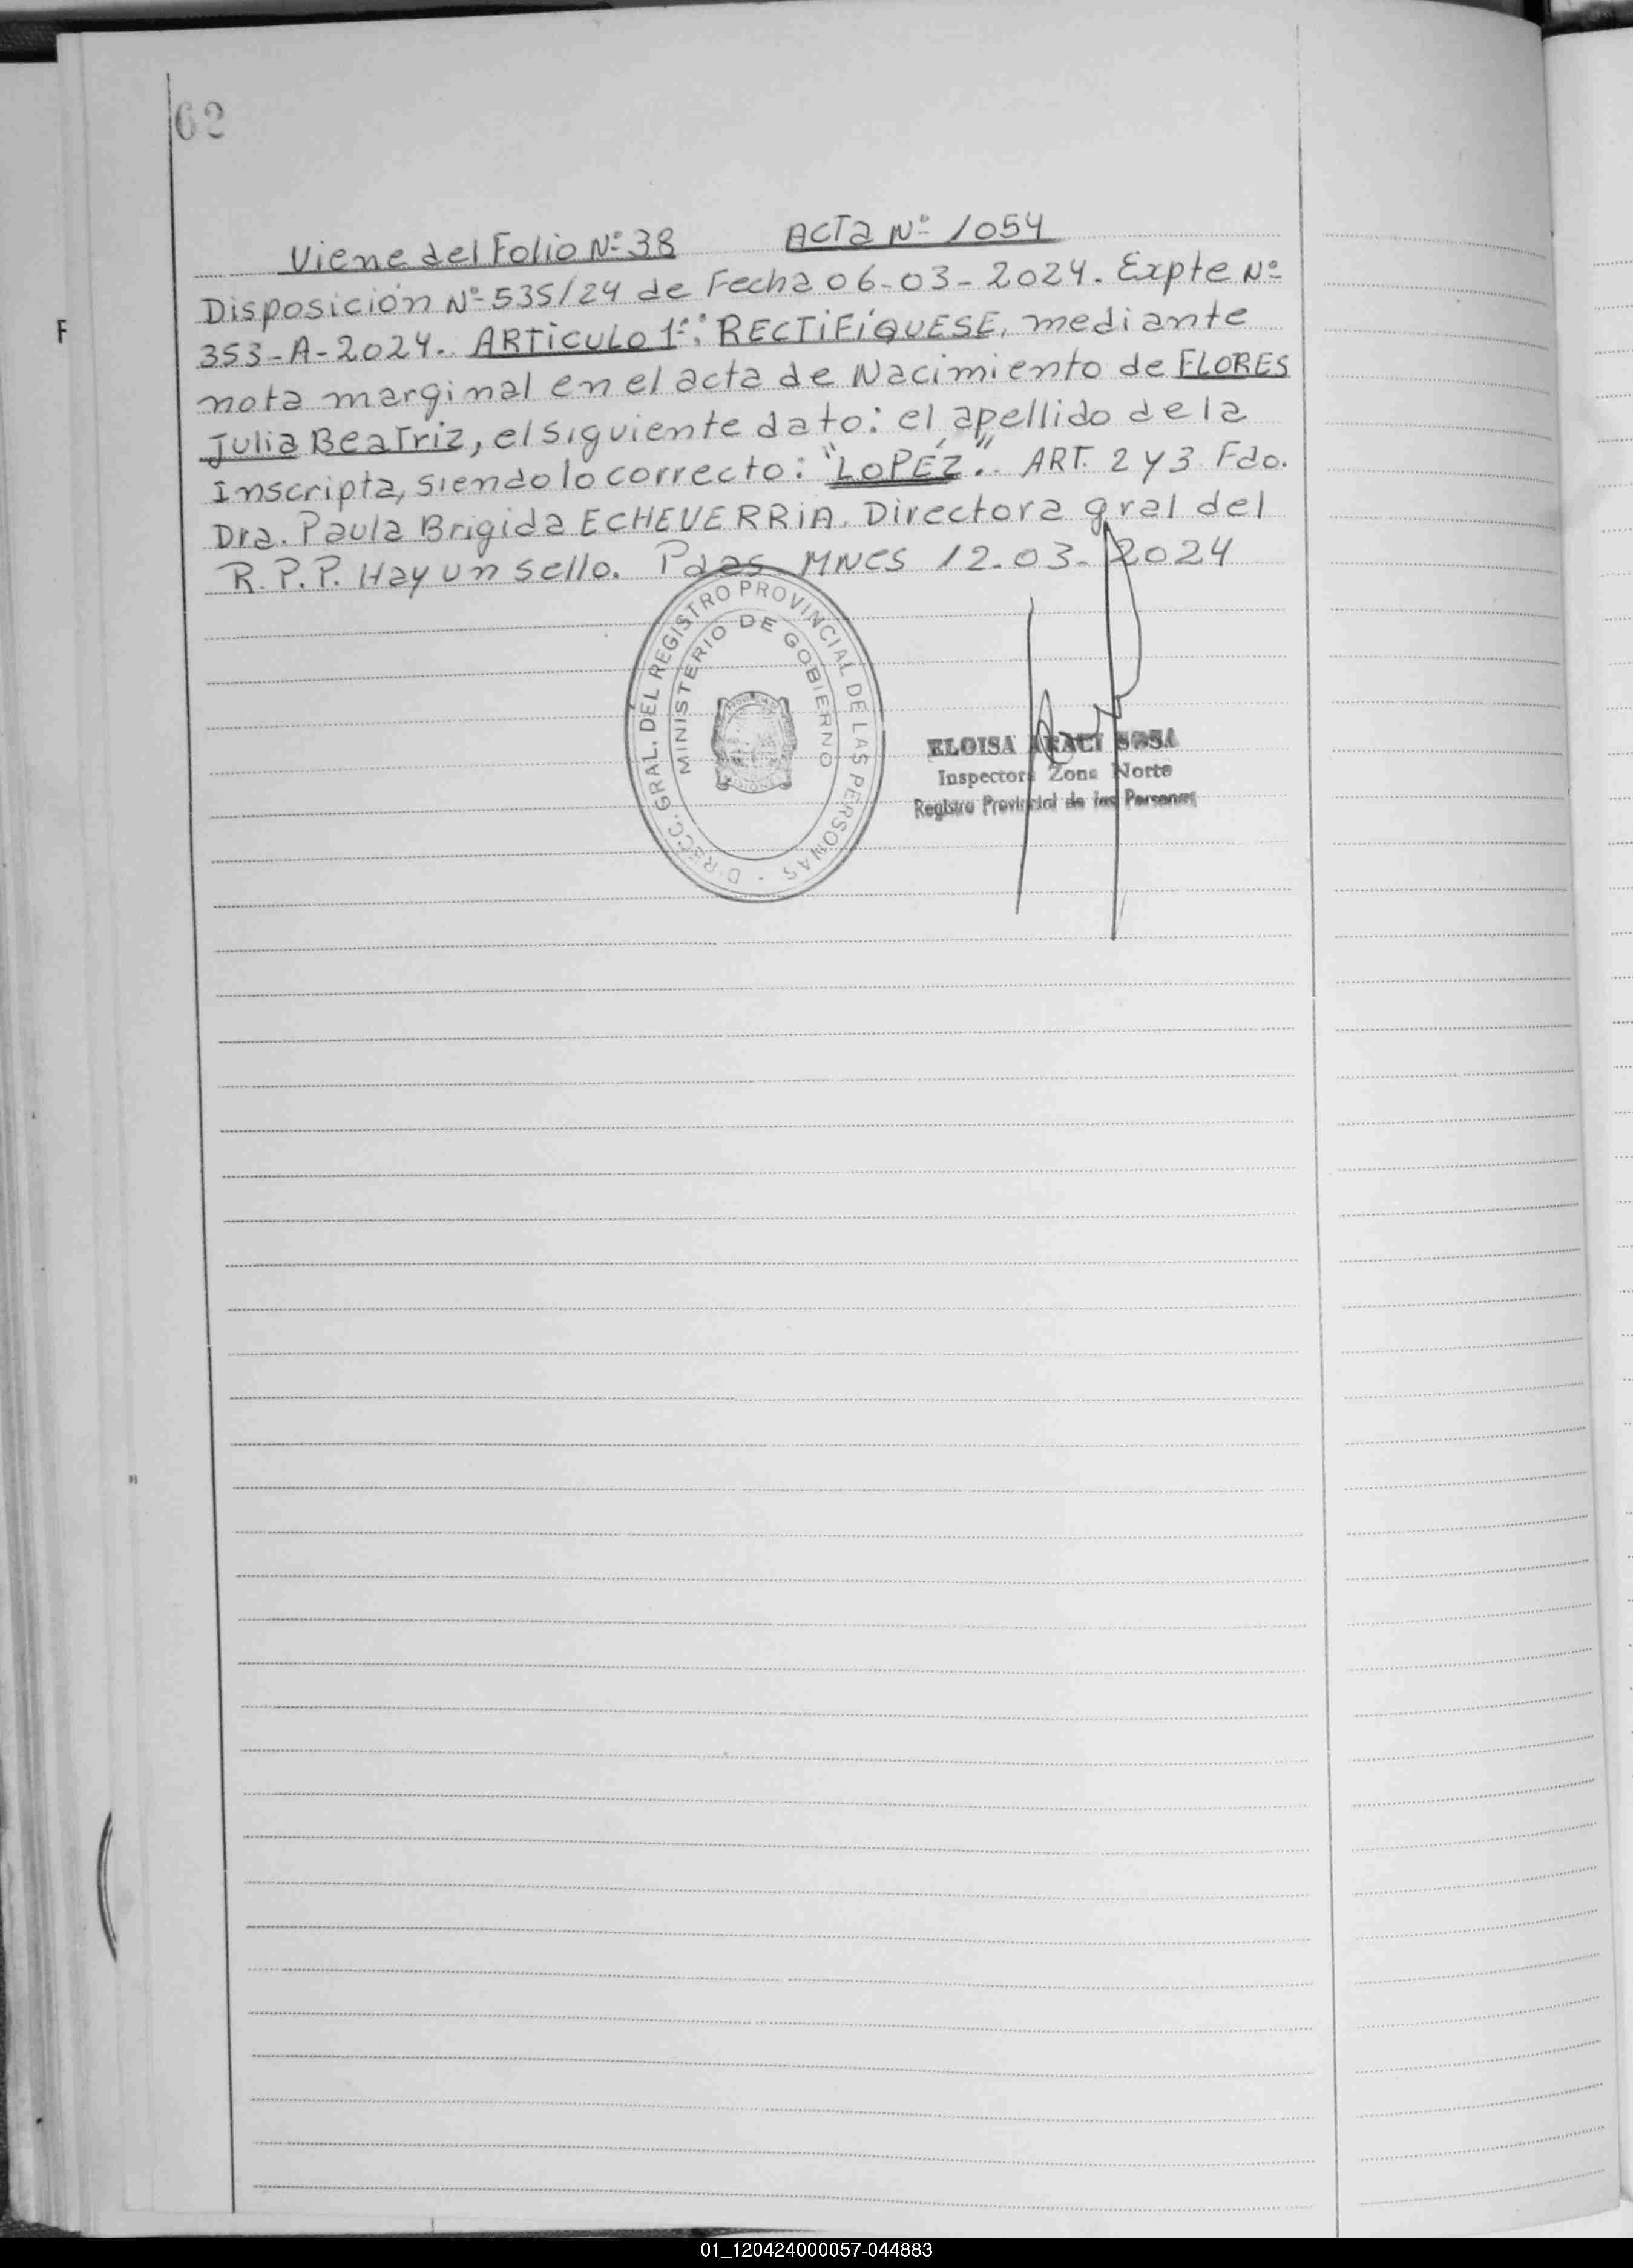 62
Viene del Folio Nº 38 Acta Nº 1054
Disposición Nº 535/24 de Fecha 06-03-2024. Expte Nº
353-A-2024. ARTICULO 1º: RECTIFÍQUESE, mediante
nota marginal en el acta de Nacimiento de FLORES
Julia Beatriz, el siguiente dato: el apellido de la
Inscripta, siendo lo correcto: "LOPÉZ". ART. 2 y 3. Fdo.
Dra. Paula Brigida ECHEVERRIA. Directora gral del
R.P.P. Hay un sello. Pdas MNES 12.03-2024
DIRECC. GRAL. DEL REGISTRO PROVINCIAL DE LAS PERSONAS
MINISTERIO DE GOBIERNO
ELOISA ARACI SOSA
Inspectora Zona Norte
Registro Provincial de las Personas
F
01_120424000057-044883